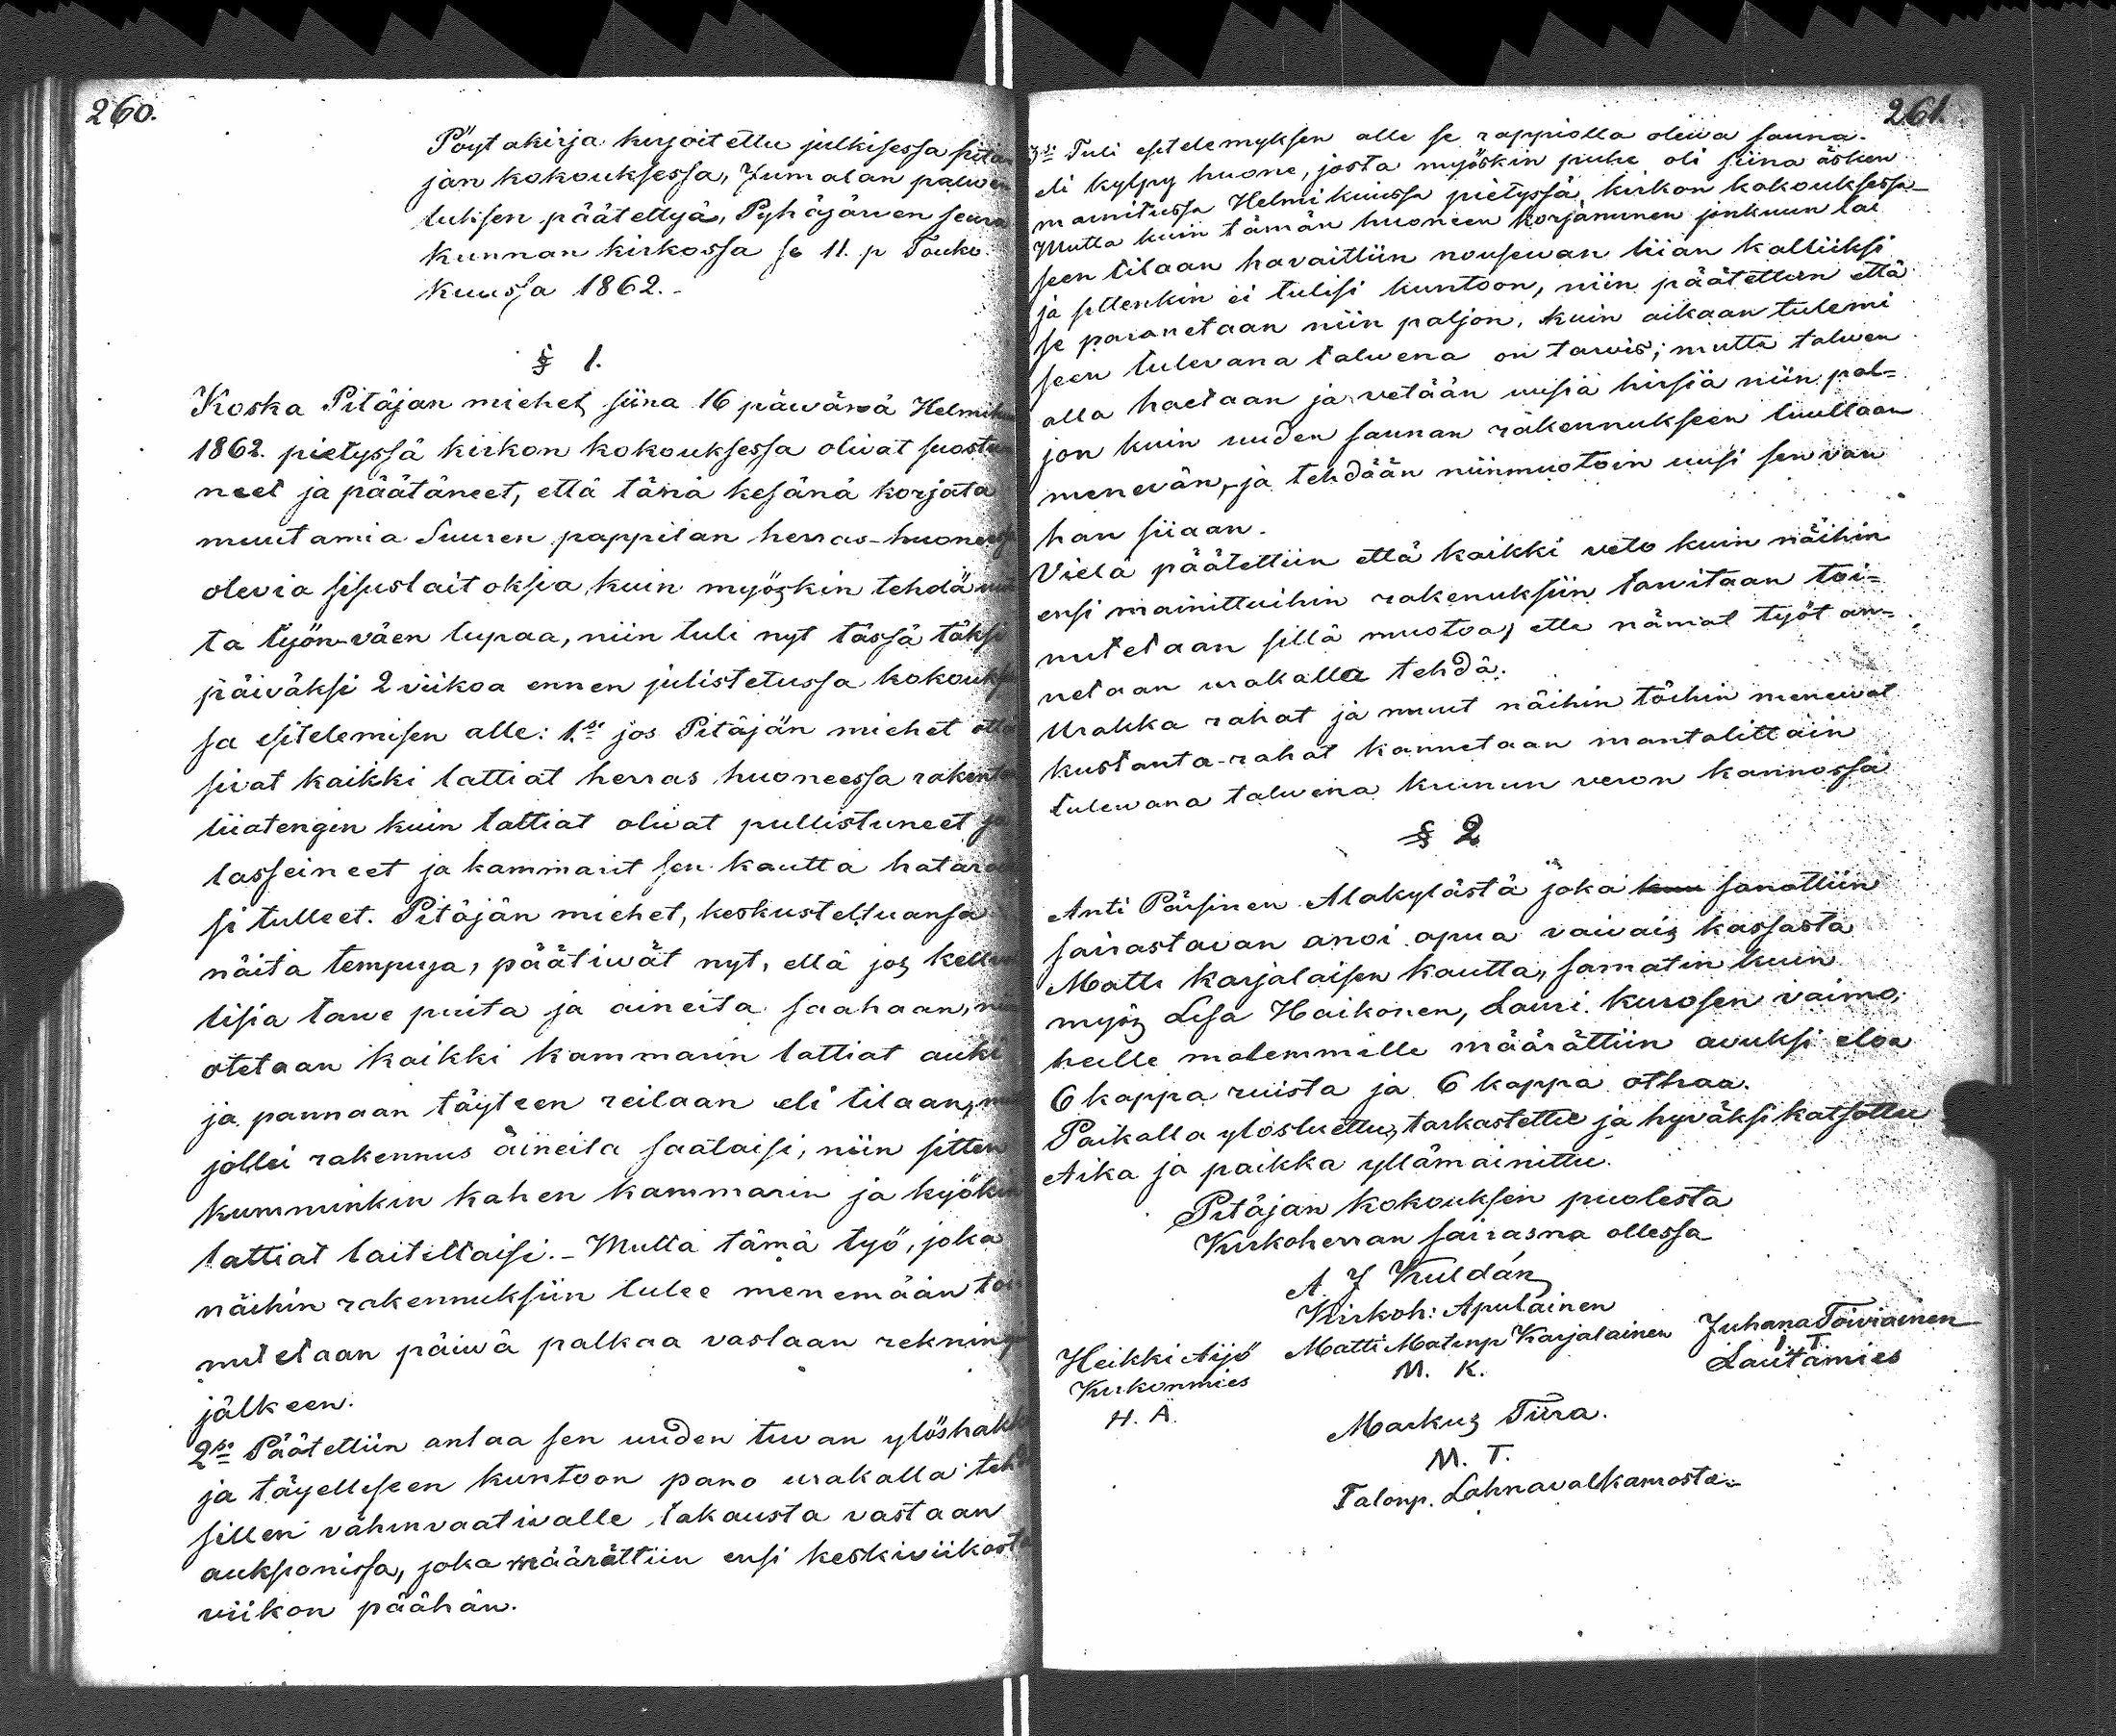 260.
Pöytakirja kirjoitettu julkisessa pitä
jän kokouksessa, Jumalan palwe
luksen päätettyä, Pyhäjärwen seura
kunnan kirkossa se 11. p Touko
Kuussa 1862.
§ 1.
Koska Pitäjan miehet siina 16 päiwänä Helmiku
1862. pietyssä kirkon kokouksessa olivat suostu
neet ja päätäneet, että tänä kesänä korjata
muutamia Suuren pappilan herras-huoneessa
olevia sisuslaitoksia, kuin myöskin tehdä
ta työn-väen tupaa, niin tuli nyt tässä täksi
päiväksi 2 viikoa ennen julistetussa kokoukse
sa esitelemisen alle: 1.si jos Pitäjän miehet otta
sivat kaikki lattiat herras huoneessa rakenta
liiatengin kuin lattiat oliwat pullistuneet ja
lasseineet ja kammarit sen kautta hatarak
si tulleet. Pitäjän miehet, keskusteltuansa
näita tempuja, päätiwät nyt, että jos kellw
lisia tarwe puita ja aineita saahaan, nii
otetaan kaikki kammarin lattiat auki
ja pannaan täyteen reilaan eli tilaan, mut
jollei rakennus aineita saataisi, niin sitten
kumminkin kahen kammarin ja kyökin
lattiat laitettaisi. - Mutta tämä työ, joka
näihin rakennuksiin tulee menemään toi
mitetaan päiwä palkaa vastaan rekningi
jälkeen.
2.si Päätettiin antaa sen uuden tuvan ylöshakk
ja täyelliseen kuntoon pano urakalla teh
sillen vähinvaativalle, takausta vastaan
auksonissa, joka määrättiin ensi keskiviikosta
viikon päähän.
261.
3.si Tuli esitelemyksen alle se rappiolla olewa sauna.
eli kylpy huone, josta myöskin puhe oli siina äsken
mainitussa Helmikuussa pietyssä kirkon kokouksessa
Mutta kuin tämän huoneen korjaminen jonkuun lai
seen tilaan havaittiin nousewan liian kalliiksi
ja sittenkin ei tulisi kuntoon, niin päätettiin että
se paranetaan niin paljon, kuin aikaan tulemi
seen tulevana talwena on tarwis; mutta talwen
alla haetaan ja vetään uusia hirsiä niin pal=
jon kuin uuden saunan rakennukseen luullaan
menevän, ja tehdään niinmuotoin uusi sen van
han siiaan.
Vielä päätettiin että kaikki veto kuin näihin
ensi mainittuihin rakenuksiin tarvitaan toi=
mitetaan sillä muotoa, että nämät työt an=
netaan urakalla tehdä.
Urakka rahat ja muut näihin töihin menewät
kustanta-rahat kannetaan mantalittain
tulewana talwena kruunun veron kannossa
§ 2
Anti Pärsinen Alakylästä joka sanottiin
sairastavan anoi apua vaivais kassasta
Matti Karjalaisen kautta, samatin kuin
myös Lisa Haikonen, Lauri Kurosen vaimo,
heille molemmille määrättiin avuksi eloa
6 kappa ruista ja 6 kappa othraa.
Paikalla ylösluettu, tarkastettu ja hyväksi katsottu
Aika ja paikka yllämainittu.
Pitäjan kokouksen puolesta
Kirkoherran sairasna ollessa
A J Kuldán
Kirkoh: Apulainen
Heikki Äijö
Kirkonmies
H. Ä.
Matti Matinp Karjalainen
M. K.
Juhana Toiviainen
I T
Lautamies
Markus Tiira.
M. T.
Talonp. Lahnavalkamosta.